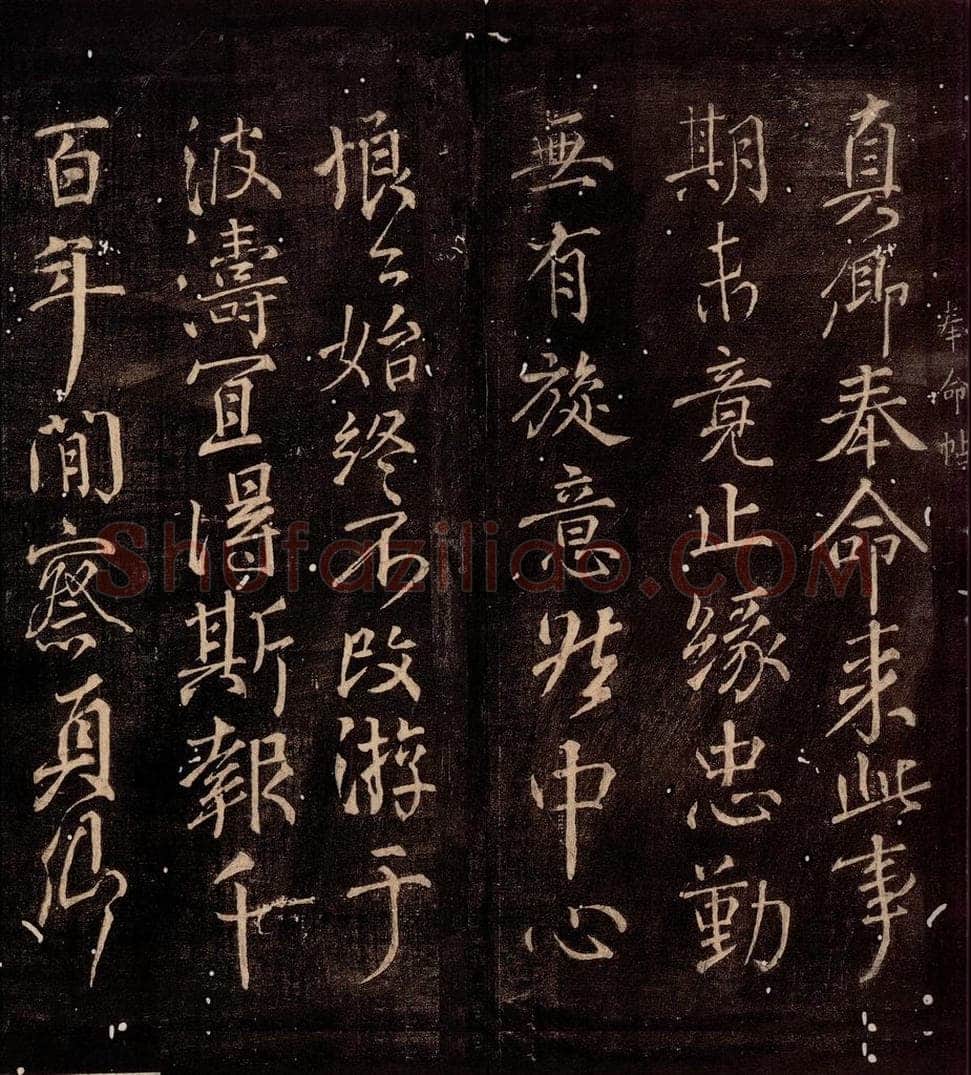 奉命帖
真卿奉命来此事
期未竟止緣忠勤
無有旋意然中心
悢々始終不改游于
波濤宜得斯報千
百年間察真卿
Shufaziliao.COM